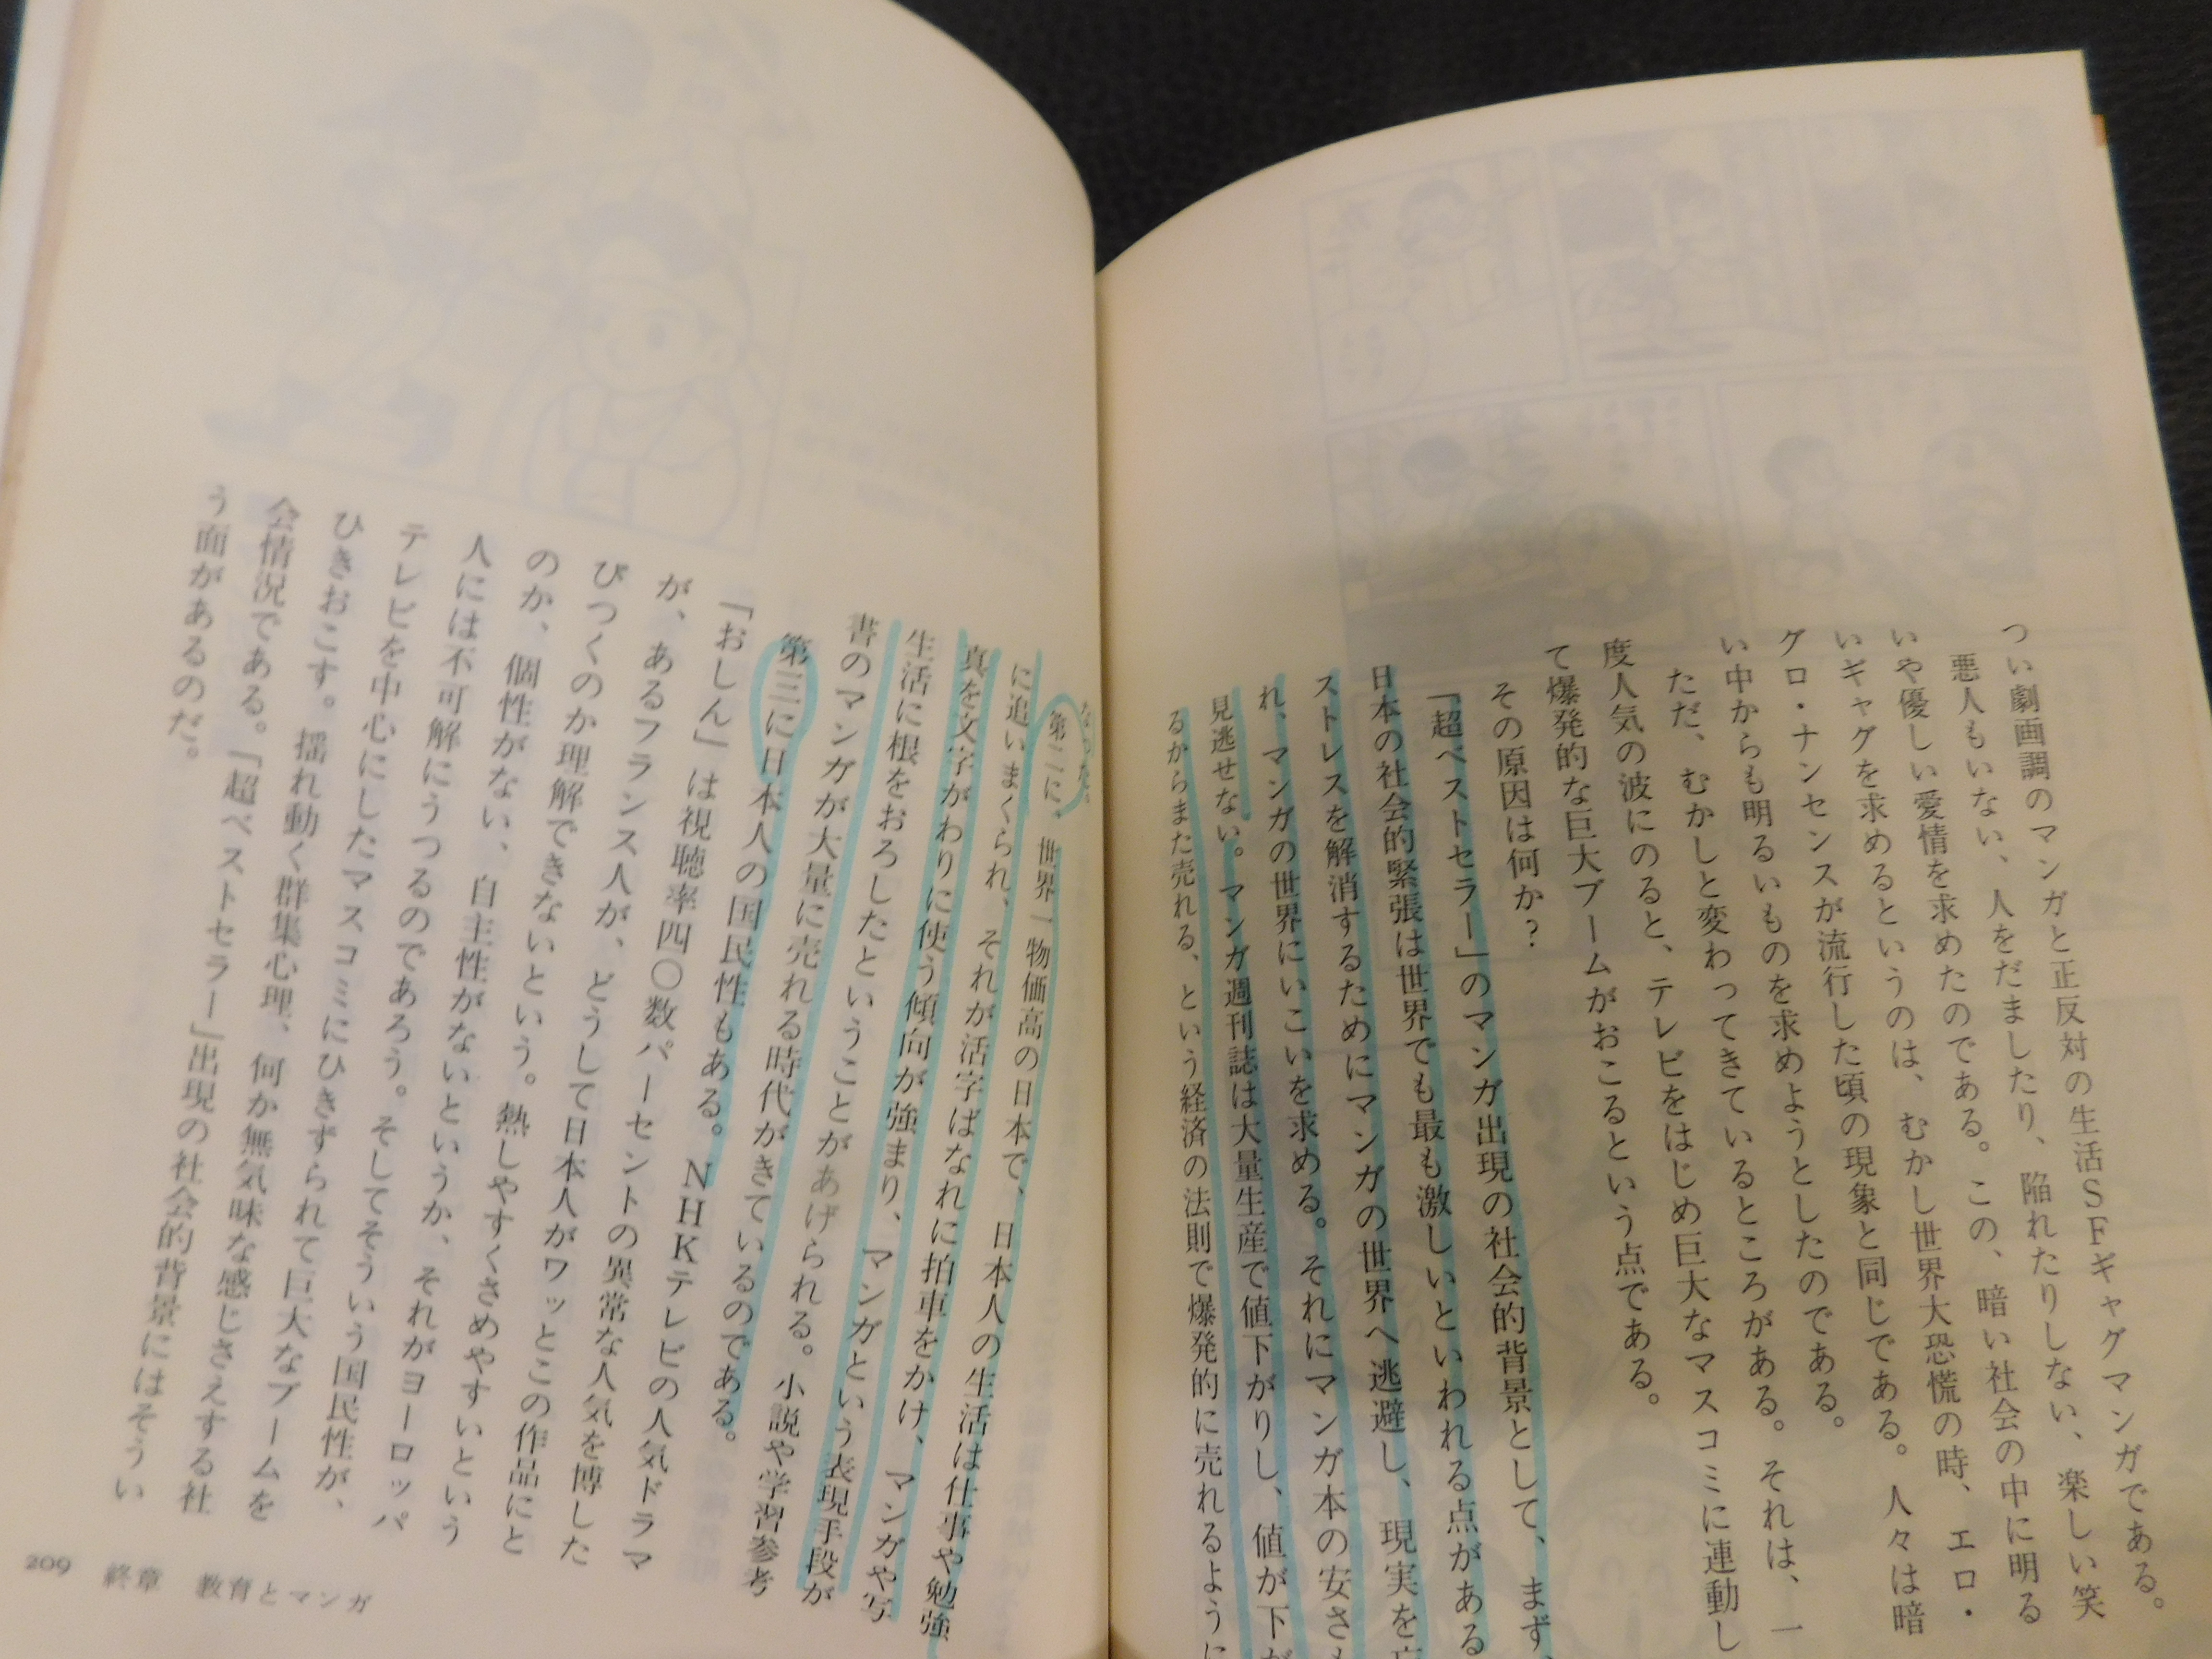 つい劇画調のマンガと正反対の生活SFギャグマンガである。
悪人もいない、人をだましたり、陥れたりしない、楽しい笑
いや優しい愛情を求めたのである。この、暗い社会の中に明る
いギャグを求めるというのは、むかし世界大恐慌の時、エロ・
グロ・ナンセンスが流行した頃の現象と同じである。人々は暗
い中からも明るいものを求めようとしたのである。
ただ、むかしと変わってきているところがある。それは、一
度人気の波にのると、テレビをはじめ巨大なマスコミに連動し
て爆発的な巨大ブームがおこるという点である。
その原因は何か?
「超ベストセラー」のマンガ出現の社会的背景として、まず、
日本の社会的緊張は世界でも最も激しいといわれる点がある
ストレスを解消するためにマンガの世界へ逃避し、現実を
れ、マンガの世界にいこいを求める。それにマンガ本の安さも
見逃せない。マンガ週刊誌は大量生産で値下がりし、値が下が
るからまた売れる、という経済の法則で爆発的に売れるように
なった。
第二に、世界一物価高の日本で、日本人の生活は仕事や勉強
に追いまくられ、それが活字ばなれに拍車をかけ、マンガや写
真を文字がわりに使う傾向が強まり、マンガという表現手段が
生活に根をおろしたということがあげられる。小説や学習参考
書のマンガが大量に売れる時代がきているのである。
第三に日本人の国民性もある。NHKテレビの人気ドラマ
「おしん」は視聴率四〇数パーセントの異常な人気を博した
が、あるフランス人が、どうして日本人がワッとこの作品にと
びつくのか理解できないという。熱しやすくさめやすいという
のか、個性がない、自主性がないというか、それがヨーロッパ
人には不可解にうつるのであろう。そしてそういう国民性が、
テレビを中心にしたマスコミにひきずられて巨大なブームを
ひきおこす。揺れ動く群集心理、何か無気味な感じさえする社
会情況である。「超ベストセラー」出現の社会的背景にはそうい
う面があるのだ。
209 終章 教育とマンガ